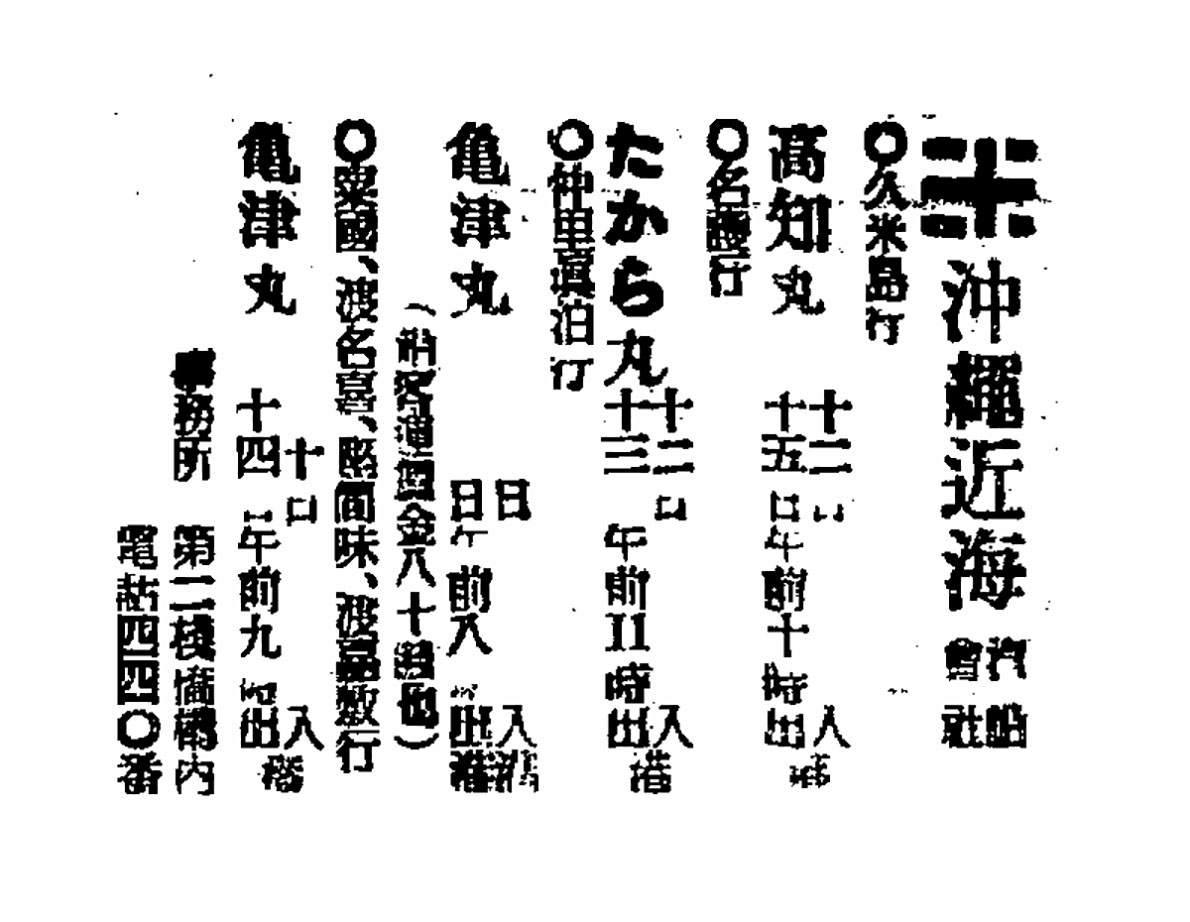 沖縄近海汽船會社
〇久米島行
高知丸 十二日入港
十五日午前十時出港
〇名護行
たから丸 十二日入港
十三 午前11時出港
〇仲里真泊行
亀津丸 日入港
日午前八時出港
金八十銭也)
〇粟國、渡名喜、座間味、渡嘉敷行
亀津丸 十日入港
十四日午前九時出港
事務所 第二棧橋構内
電話四四〇番